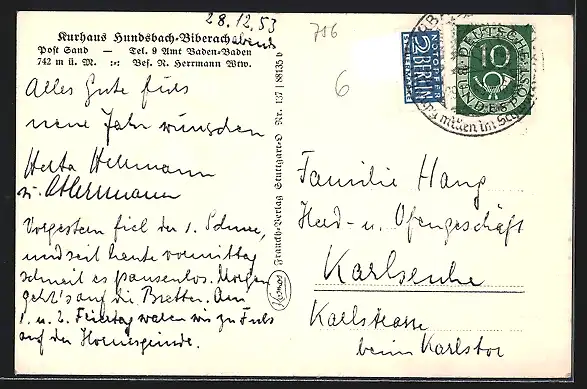 28.12.53
abends
786
Kurhaus Hundsbach-Biberach
Post Sand — Tel. 9 Amt Baden-Baden
742 m ü. M. :-: Bes. N. Herrmann Wtw.
6
Alles Gute fürs
neue Jahr wünschen
Herta
u.
Vorgestern fiel der 1. Schnee,
und seit heute vormittag
schneit es pausenlos. Morgen
geht's auf die Bretter. Am
1. u. 2. Feiertag waren wir zu Fuß
auf der Hornisgrinde.
Franckh-Verlag Stuttgart-O Nr. 137 | 88135 b
Kosmos
2
NOTOPFER
BERLIN
STEUERMARKE
DEUTSCHE
BUNDESPOST
10
mitten im
Familie Haug
Herd- u. Ofengeschäft
Karlsruhe
Karlstrasse
beim Karlstor